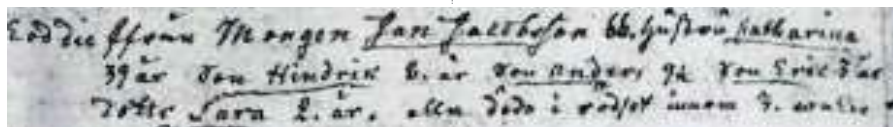 Eod die ffrån Mongen Jan Jacobsson 66. hustru Katharina
39 år Son Hindrik 6. år Son Anders 9½ Son Erik 3 år
dotter Sara 2. år, alla döde i rödsot innom 3. weckor